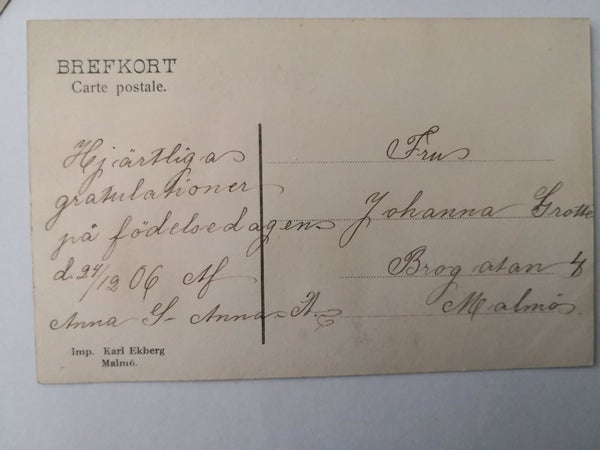 BREFKORT
Carte postale.
Hjärtliga
gratulationer
på födelsedagen
d. 24/12 06 Af
Anna S- Anna A.
Fru
Johanna Grotte
Brogatan 8
Malmö.
Imp. Karl Ekberg
Malmö.